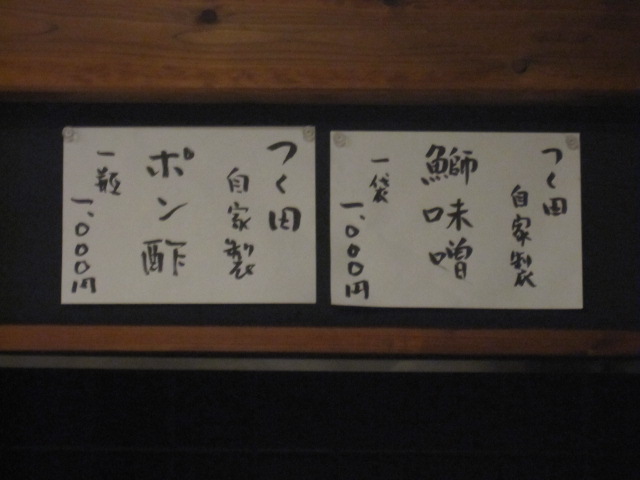 つく田
自家製
鰤味噌
一袋
一、〇〇〇円
つく田
自家製
ポン酢
一瓶
一、〇〇〇円